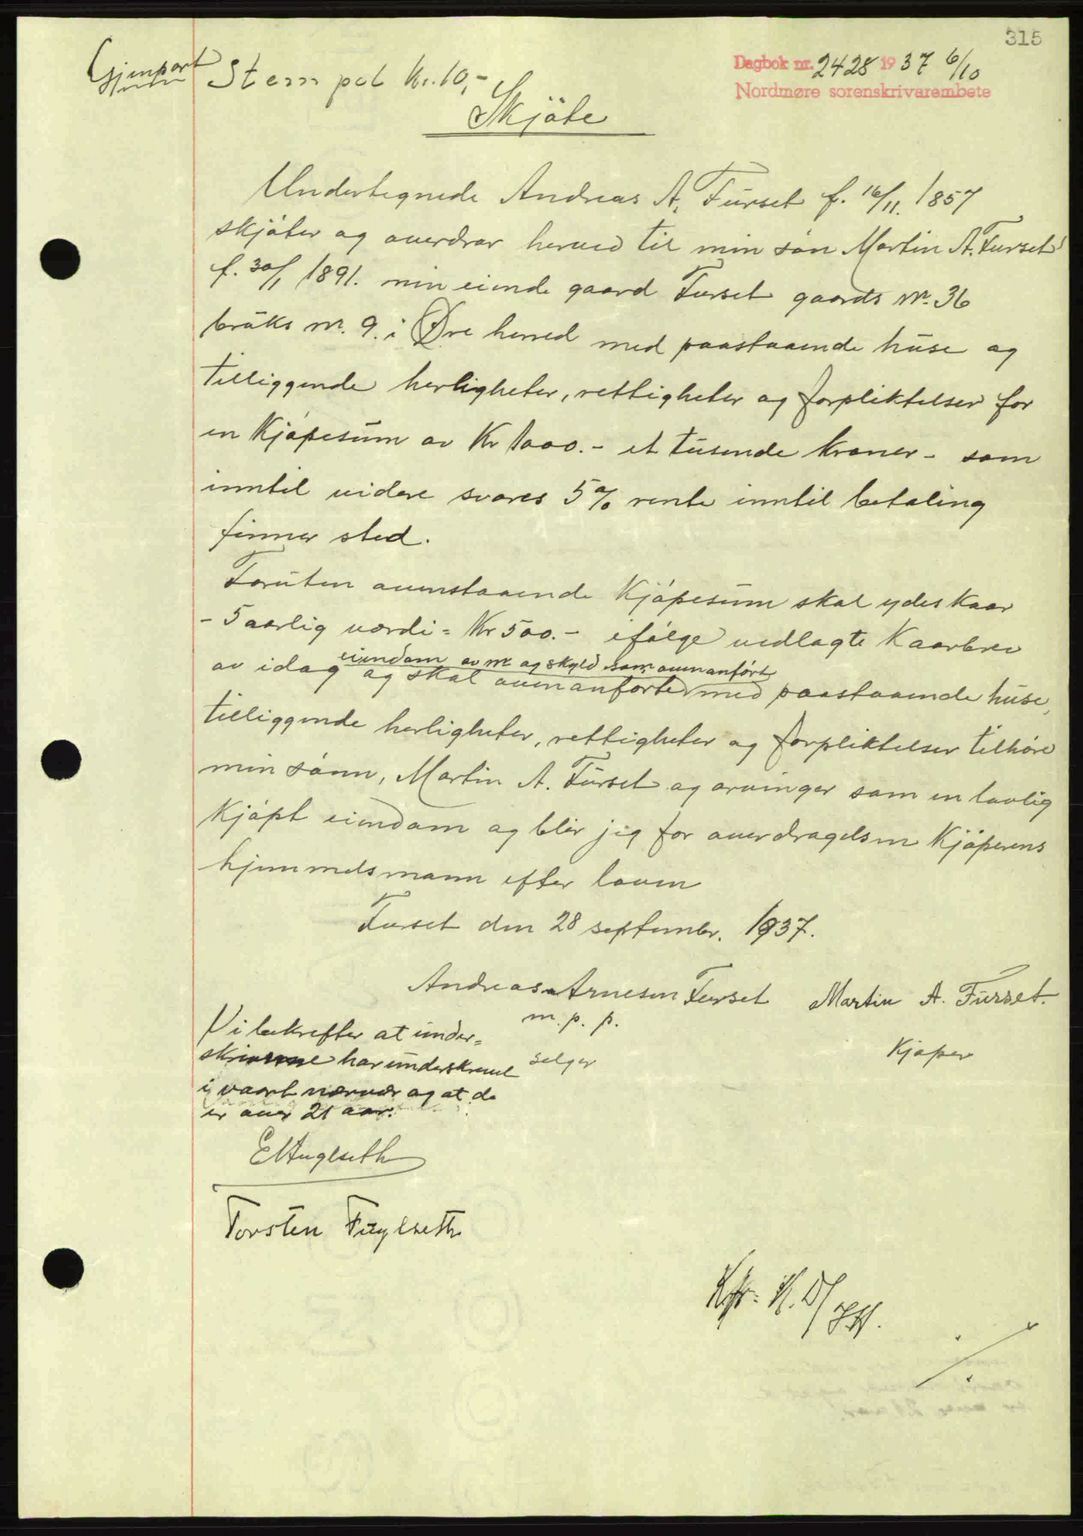 315
Gjenpart Stempel Kr. 10,-
Dagbok nr. 2428 1937 6/10
Nordmøre sorenskrivarembete
Skjöte
Undertegnede Andreas A. Furset f. 16/11. 1857
skjöter og överdrar herved til min sön Martin A. Furset
f. 30/1 1891. min eiende gaard Furset gaards nr. 36
bruks nr. 9. i Øre herred med paastaaende huse og
tilliggende herligheter, rettigheter og forpliktelser for
en Kjöpesum av Kr 1000.- et tusende kroner - som
inntil videre svares 5% rente inntil betaling
finner sted.
Foruten ovenstaaende Kjöpesum skal ydes Kaar
- 5 aarlig værdi = Kr 500.- ifölge vedlagte Kaarbrev
eiendom av nr og skyld som ovenanfört
av idag og skal ovenanförte med paastaaende huse,
tilliggende herligheter, rettigheter og forpliktelser tilhöre
min sönn, Martin A. Furset og arvinger som en lovlig
Kjöpt eiendom og blir jeg for overdragelsen Kjöperens
hjemmelsmann efter loven
Furset den 28 septembr. 1937.
Andreas Arnesen Furset Martin A. Furset.
m. p. p.
selger Kjöper
Vi bekrefter at under-
skriverne har underskrevet
i vaart nærvær og at de
er over 21 aar.
E Fuglseth
Torsten Fuglseth
Kfr. H. D/